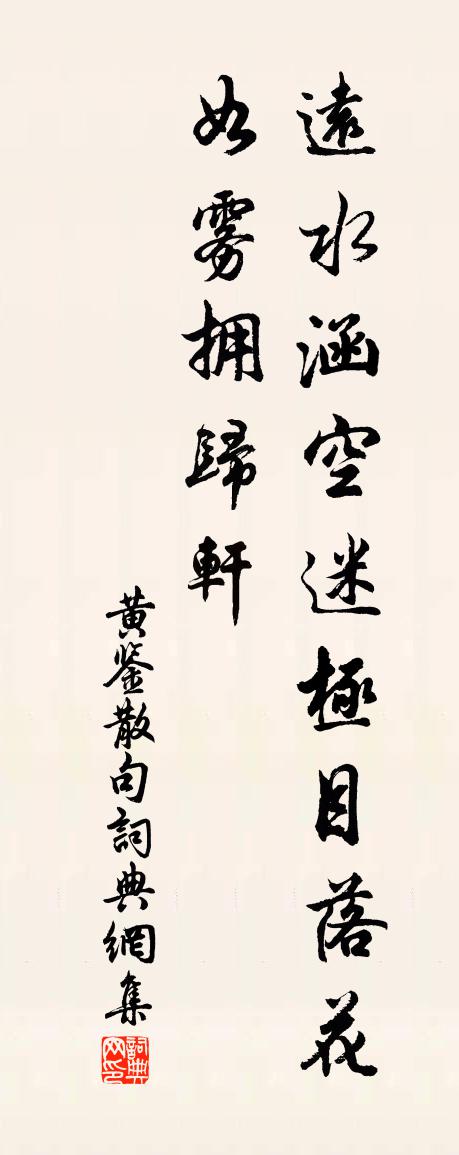 遠水涵空迷極目落花
如雾拥歸軒
黄鉴散句詞典網集
詞典网印